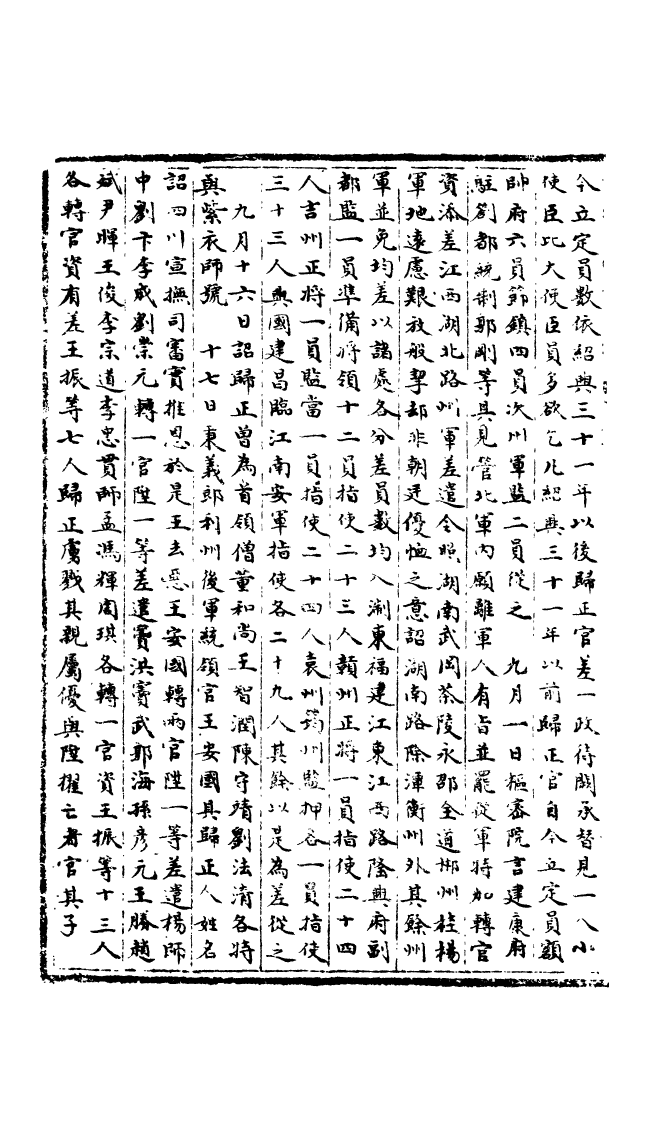 今立定員數依紹興三十一年以後歸正官差一政待闕承替見一八小
使臣比大使臣員多欲乞凡紹興三十一年以前歸正官自今立定員額
帥府六員節鎮四員次州軍監二員從之　九月一日樞密院言建康府
駐劄都統制郭剛等具見管北軍內願離軍人有旨並罷從軍特加轉官
資添差江西湖北路州軍差遣今照湖南武岡茶陵永邵全道郴州桂楊
軍地遠慮艱於般挈却非朝廷優恤之意詔湖南路除潭衡州外其餘州
軍並免均差以諸處各分差員數均入淛東福建江東江西路隆興府副
都監一員準備將領十二員指使二十三人贛州正將一員指使二十四
人吉州正將一員監當一員指使二十四人袁州筠州監押各一員指使
三十三人興國建昌臨江南安軍指使各二十九人其餘以是為差從之
九月十六日詔歸正曾為首領僧董和尚王智潤陳守靖劉法清各特
與紫衣師號　十七日秉義郎利州後軍統領官王安國具歸正人姓名
詔四川宣撫司審實推恩於是王去惡王安國轉兩官陞一等差遣楊師
中劉卞李成劉榮元轉一官陞一等差遣竇洪竇武郭海孫彥元王勝趙
斌尹暉王俊李宗道李忠貫師孟馮輝周琪各轉一官資王振等十三人
各轉官資有差王振等七人歸正虜戮其親屬優與陞擢亡者官其子